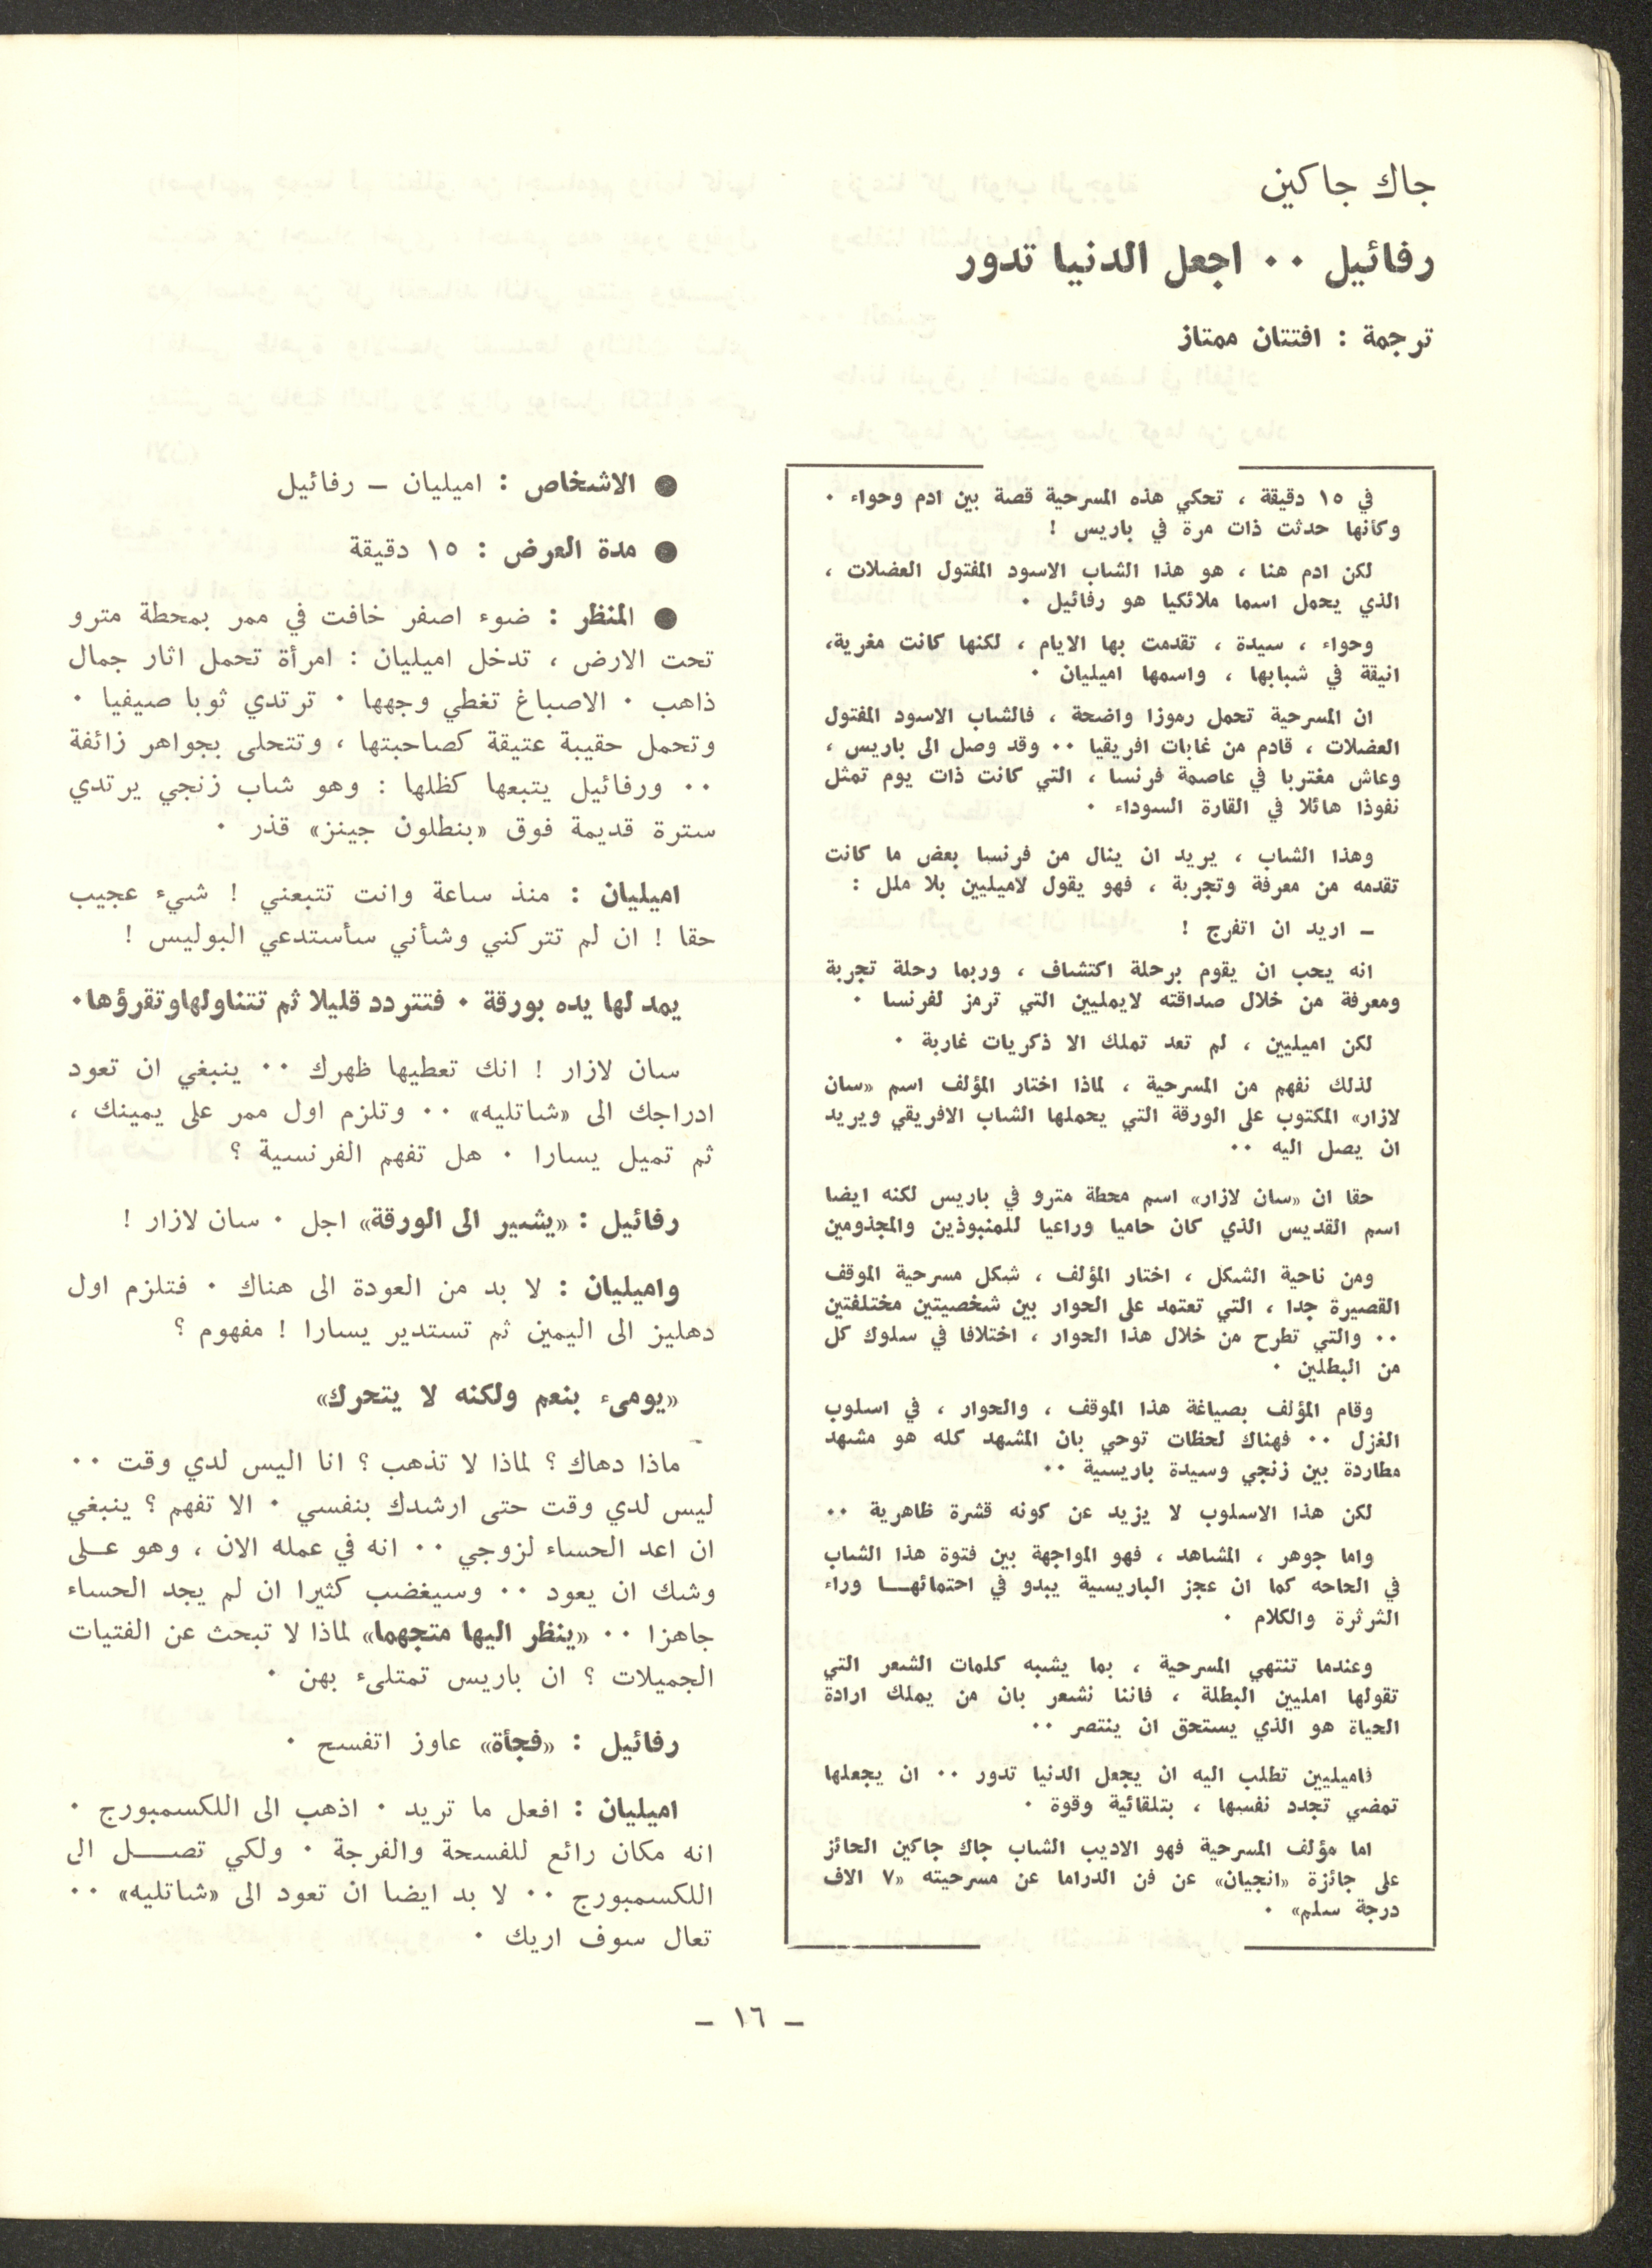 جاك جاكين
رفائيل ٠٠ اجعل الدنيا تدور
ترجمة : افتتان ممتاز
في ١٥ دقيقة ، تحكي هذه المسرحية قصة بين ادم وحواء ٠
وكأنها حدثت ذات مرة في باريس !
لكن ادم هنا ، هو هذا الشاب الاسود المفتول العضلات ،
الذي يحمل اسما ملائكيا هو رفائيل ٠
وحواء ، سيدة ، تقدمت بها الايام ، لكنها كانت مغرية،
انيقة في شبابها ، واسمها اميليان ٠
ان المسرحية تحمل رموزا واضحة ، فالشاب الاسود المفتول
العضلات ، قادم من غابات افريقيا ٠٠ وقد وصل الى باريس ،
وعاش مغتربا في عاصمة فرنسا ، التي كانت ذات يوم تمثل
نفوذا هائلا في القارة السوداء ٠
وهذا الشاب ، يريد ان ينال من فرنسا بعض ما كانت
تقدمه من معرفة وتجربة ، فهو يقول لاميليين بلا ملل :
– اريد ان اتفرج !
انه يحب ان يقوم برحلة اكتشاف ، وربما رحلة تجربة
ومعرفة من خلال صداقته لايمليين التي ترمز لفرنسا ٠
لكن اميليين ، لم تعد تملك الا ذكريات غاربة ٠
لذلك نفهم من المسرحية ، لماذا اختار المؤلف اسم «سان
لازار» المكتوب على الورقة التي يحملها الشاب الافريقي ويريد
ان يصل اليه ٠٠
حقا ان «سان لازار» اسم محطة مترو في باريس لكنه ايضا
اسم القديس الذي كان حاميا وراعيا للمنبوذين والمجذومين
ومن ناحية الشكل ، اختار المؤلف ، شكل مسرحية الموقف
القصيرة جدا ، التي تعتمد على الحوار بين شخصيتين مختلفتين
٠٠ والتي تطرح من خلال هذا الحوار ، اختلافا في سلوك كل
من البطلين ٠
وقام المؤلف بصياغة هذا الموقف ، والحوار ، في اسلوب
الغزل ٠٠ فهناك لحظات توحي بان المشهد كله هو مشهد
مطاردة بين زنجي وسيدة باريسية ٠٠
لكن هذا الاسلوب لا يزيد عن كونه قشرة ظاهرية ٠٠
واما جوهر ، المشاهد ، فهو المواجهة بين فتوة هذا الشاب
في الحاحه كما ان عجز الباريسية يبدو في احتمائهــا وراء
الثرثرة والكلام ٠
وعندما تنتهي المسرحية ، بما يشبه كلمات الشعر التي
تقولها امليين البطلة ، فاننا نشعر بان من يملك ارادة
الحياة هو الذي يستحق ان ينتصر ٠٠
فاميليين تطلب اليه ان يجعل الدنيا تدور ٠٠ ان يجعلها
تمضي تجدد نفسها ، بتلقائية وقوة ٠
اما مؤلف المسرحية فهو الاديب الشاب جاك جاكين الحائز
على جائزة «انجيان» عن فن الدراما عن مسرحيته «٧ الاف
درجة سلم» ٠
● الاشخاص : اميليان – رفائيل
● مدة العرض : ١٥ دقيقة
● المنظر : ضوء اصفر خافت في ممر بمحطة مترو
تحت الارض ، تدخل اميليان : امرأة تحمل اثار جمال
ذاهب ٠ الاصباغ تغطي وجهها ٠ ترتدي ثوبا صيفيا ٠
وتحمل حقيبة عتيقة كصاحبتها ، وتتحلى بجواهر زائفة
٠٠ ورفائيل يتبعها كظلها : وهو شاب زنجي يرتدي
سترة قديمة فوق «بنطلون جينز» قذر ٠
اميليان : منذ ساعة وانت تتبعني ! شيء عجيب
حقا ! ان لم تتركني وشأني سأستدعي البوليس !
يمد لها يده بورقة ٠ فتتردد قليلا ثم تتناولهاوتقرؤها٠
سان لازار ! انك تعطيها ظهرك ٠٠ ينبغي ان تعود
ادراجك الى «شاتليه» ٠٠ وتلزم اول ممر على يمينك ،
ثم تميل يسارا ٠ هل تفهم الفرنسية ؟
رفائيل : «يشير الى الورقة» اجل ٠ سان لازار !
واميليان : لا بد من العودة الى هناك ٠ فتلزم اول
دهليز الى اليمين ثم تستدير يسارا ! مفهوم ؟
«يومىء بنعم ولكنه لا يتحرك»
ماذا دهاك ؟ لماذا لا تذهب ؟ انا اليس لدي وقت ٠٠
ليس لدي وقت حتى ارشدك بنفسي ٠ الا تفهم ؟ ينبغي
ان اعد الحساء لزوجي ٠٠ انه في عمله الان ، وهو عــلى
وشك ان يعود ٠٠ وسيغضب كثيرا ان لم يجد الحساء
جاهزا ٠٠ «ينظر اليها متجهما» لماذا لا تبحث عن الفتيات
الجميلات ؟ ان باريس تمتلىء بهن ٠
رفائيل : «فجأة» عاوز اتفسح ٠
اميليان : افعل ما تريد ٠ اذهب الى اللكسمبورج ٠
انه مكان رائع للفسحة والفرجة ٠ ولكي تصــــل الى
اللكسمبورج ٠٠ لا بد ايضا ان تعود الى «شاتليه» ٠٠
تعال سوف اريك ٠
– ١٦ –